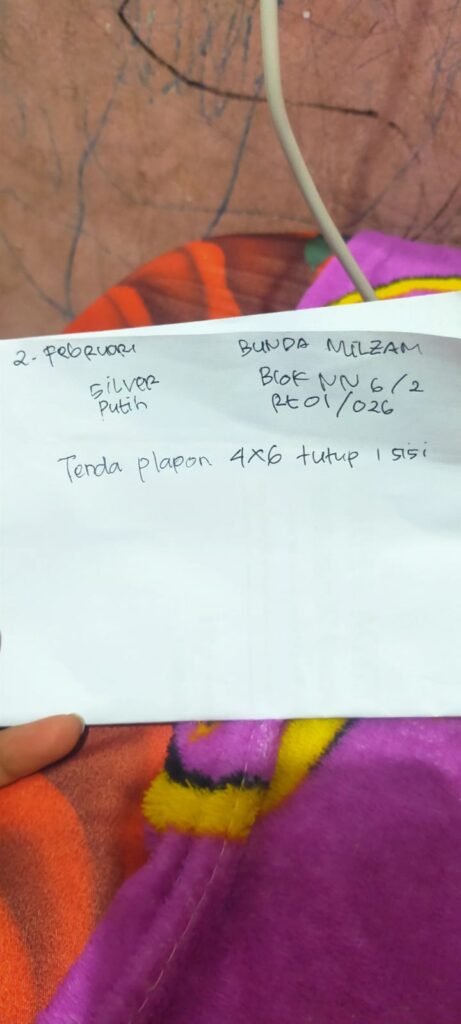 2. Februari BUNDA MILZAM
Silver Blok NN 6/2
Putih Rt 01/026
Tenda plapon 4x6 tutup 1 sisi